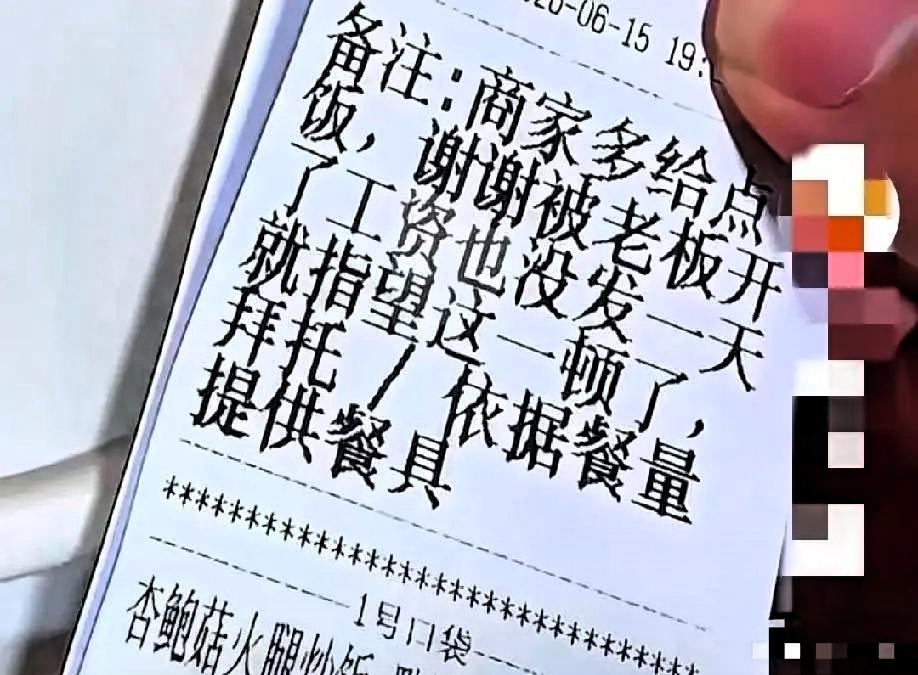 26-06-15 19:
备注:商家多给点
饭,谢谢被老板开
了工资也没发一天
就指望这一顿了,
拜托 / 依据餐量
提供餐具
********************************
1号口袋
杏鲍菇火腿炒饭